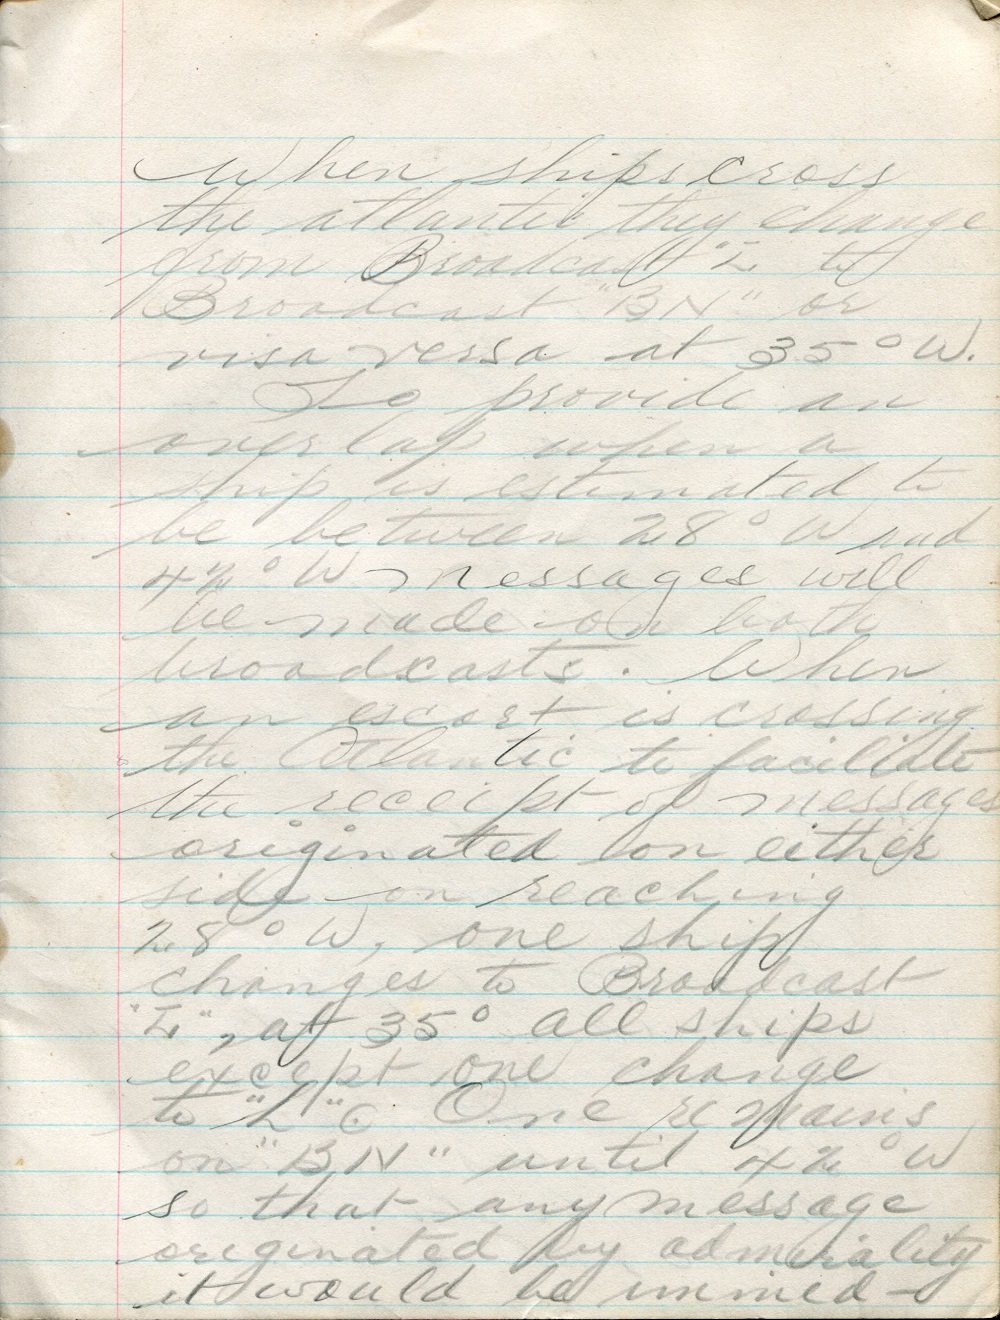 When ships cross
the atlantic they change
from Broadcast "L" to
Broadcast "BN" or
visa versa at 35° W.
To provide an
overlap when a
ship is estimated to
be between 28° W and
42° W messages will
be made on both
broadcasts. When
an escort is crossing
the Atlantic to facilitate
the receipt of messages
originated on either
side on reaching
28° W, one ship
changes to Broadcast
"L", at 35° all ships
except one change
to "L". One remains
on "BN" until 42° W
so that any message
originated by admirality
it would be immed-